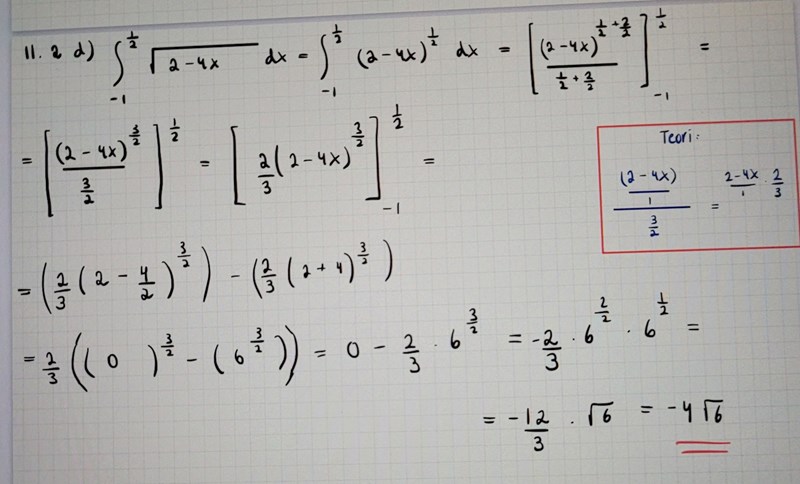 11.2 d) ∫_{-1}^{1/2} √(2-4x) dx = ∫_{-1}^{1/2} (2-4x)^{1/2} dx = [ (2-4x)^{1/2+2/2} / (1/2+2/2) ]_{-1}^{1/2} =
= [ (2-4x)^{3/2} / (3/2) ]^{1/2} = [ 2/3 (2-4x)^{3/2} ]_{-1}^{1/2} =
Teori:
((2-4x)/1) / (3/2) = (2-4x)/1 · 2/3
= (2/3 (2 - 4/2)^{3/2}) - (2/3 (2+4)^{3/2})
= 2/3 ((0)^{3/2} - (6^{3/2})) = 0 - 2/3 · 6^{3/2} = -2/3 · 6^{2/2} · 6^{1/2} =
= -12/3 · √6 = -4√6